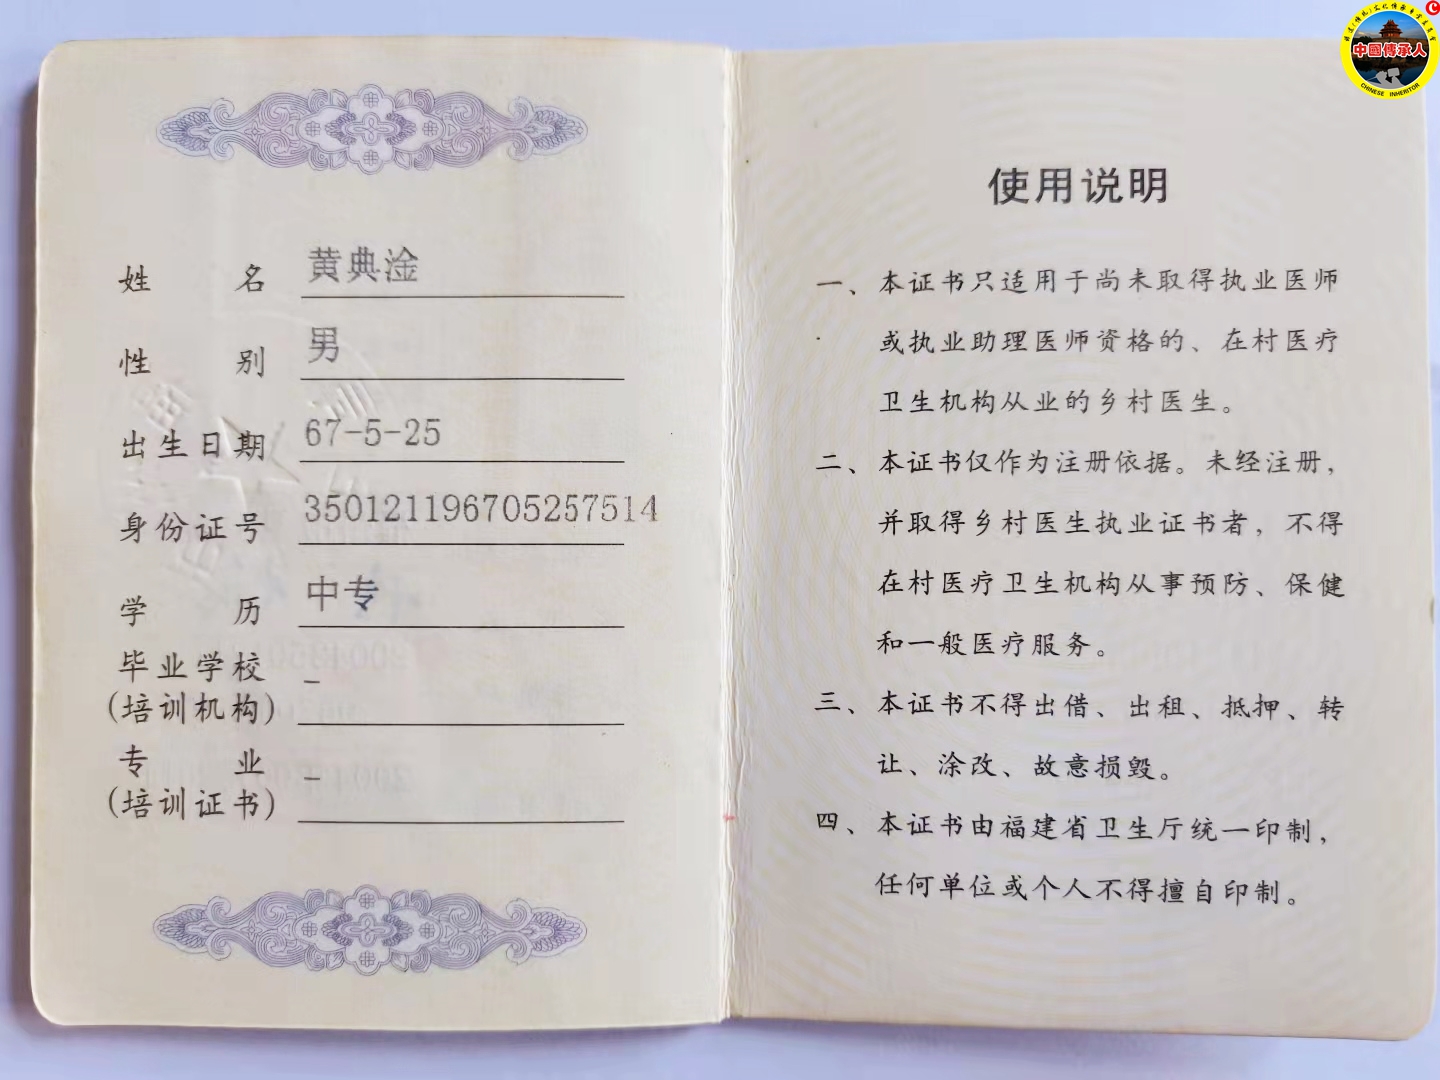 姓名 黄典淦
性别 男
出生日期 67-5-25
身份证号 350121196705257514
学历 中专
毕业学校 —
(培训机构)
专业 —
(培训证书)
使用说明
一、本证书只适用于尚未取得执业医师
或执业助理医师资格的、在村医疗
卫生机构从业的乡村医生。
二、本证书仅作为注册依据。未经注册，
并取得乡村医生执业证书者，不得
在村医疗卫生机构从事预防、保健
和一般医疗服务。
三、本证书不得出借、出租、抵押、转
让、涂改、故意损毁。
四、本证书由福建省卫生厅统一印制，
任何单位或个人不得擅自印制。
中國傳承人
CHINESE INHERITOR
C